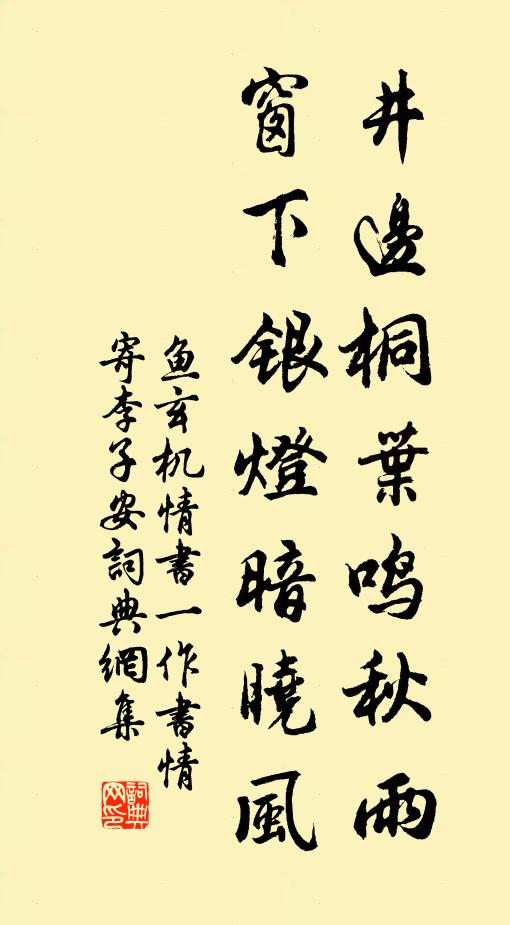 井邊桐葉鳴秋雨
窗下銀燈暗曉風
鱼玄机情書一作書情
寄李子安詞典網集
詞典网印